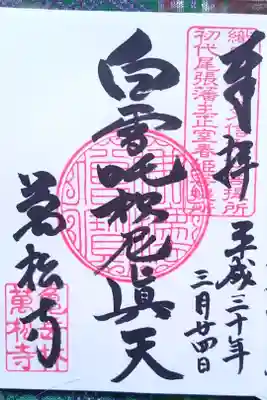 奉拝
平成三十年
三月廿四日
白雪吒枳尼眞天
萬松寺
初代尾張藩主正室春姫
亀岳林
萬松寺